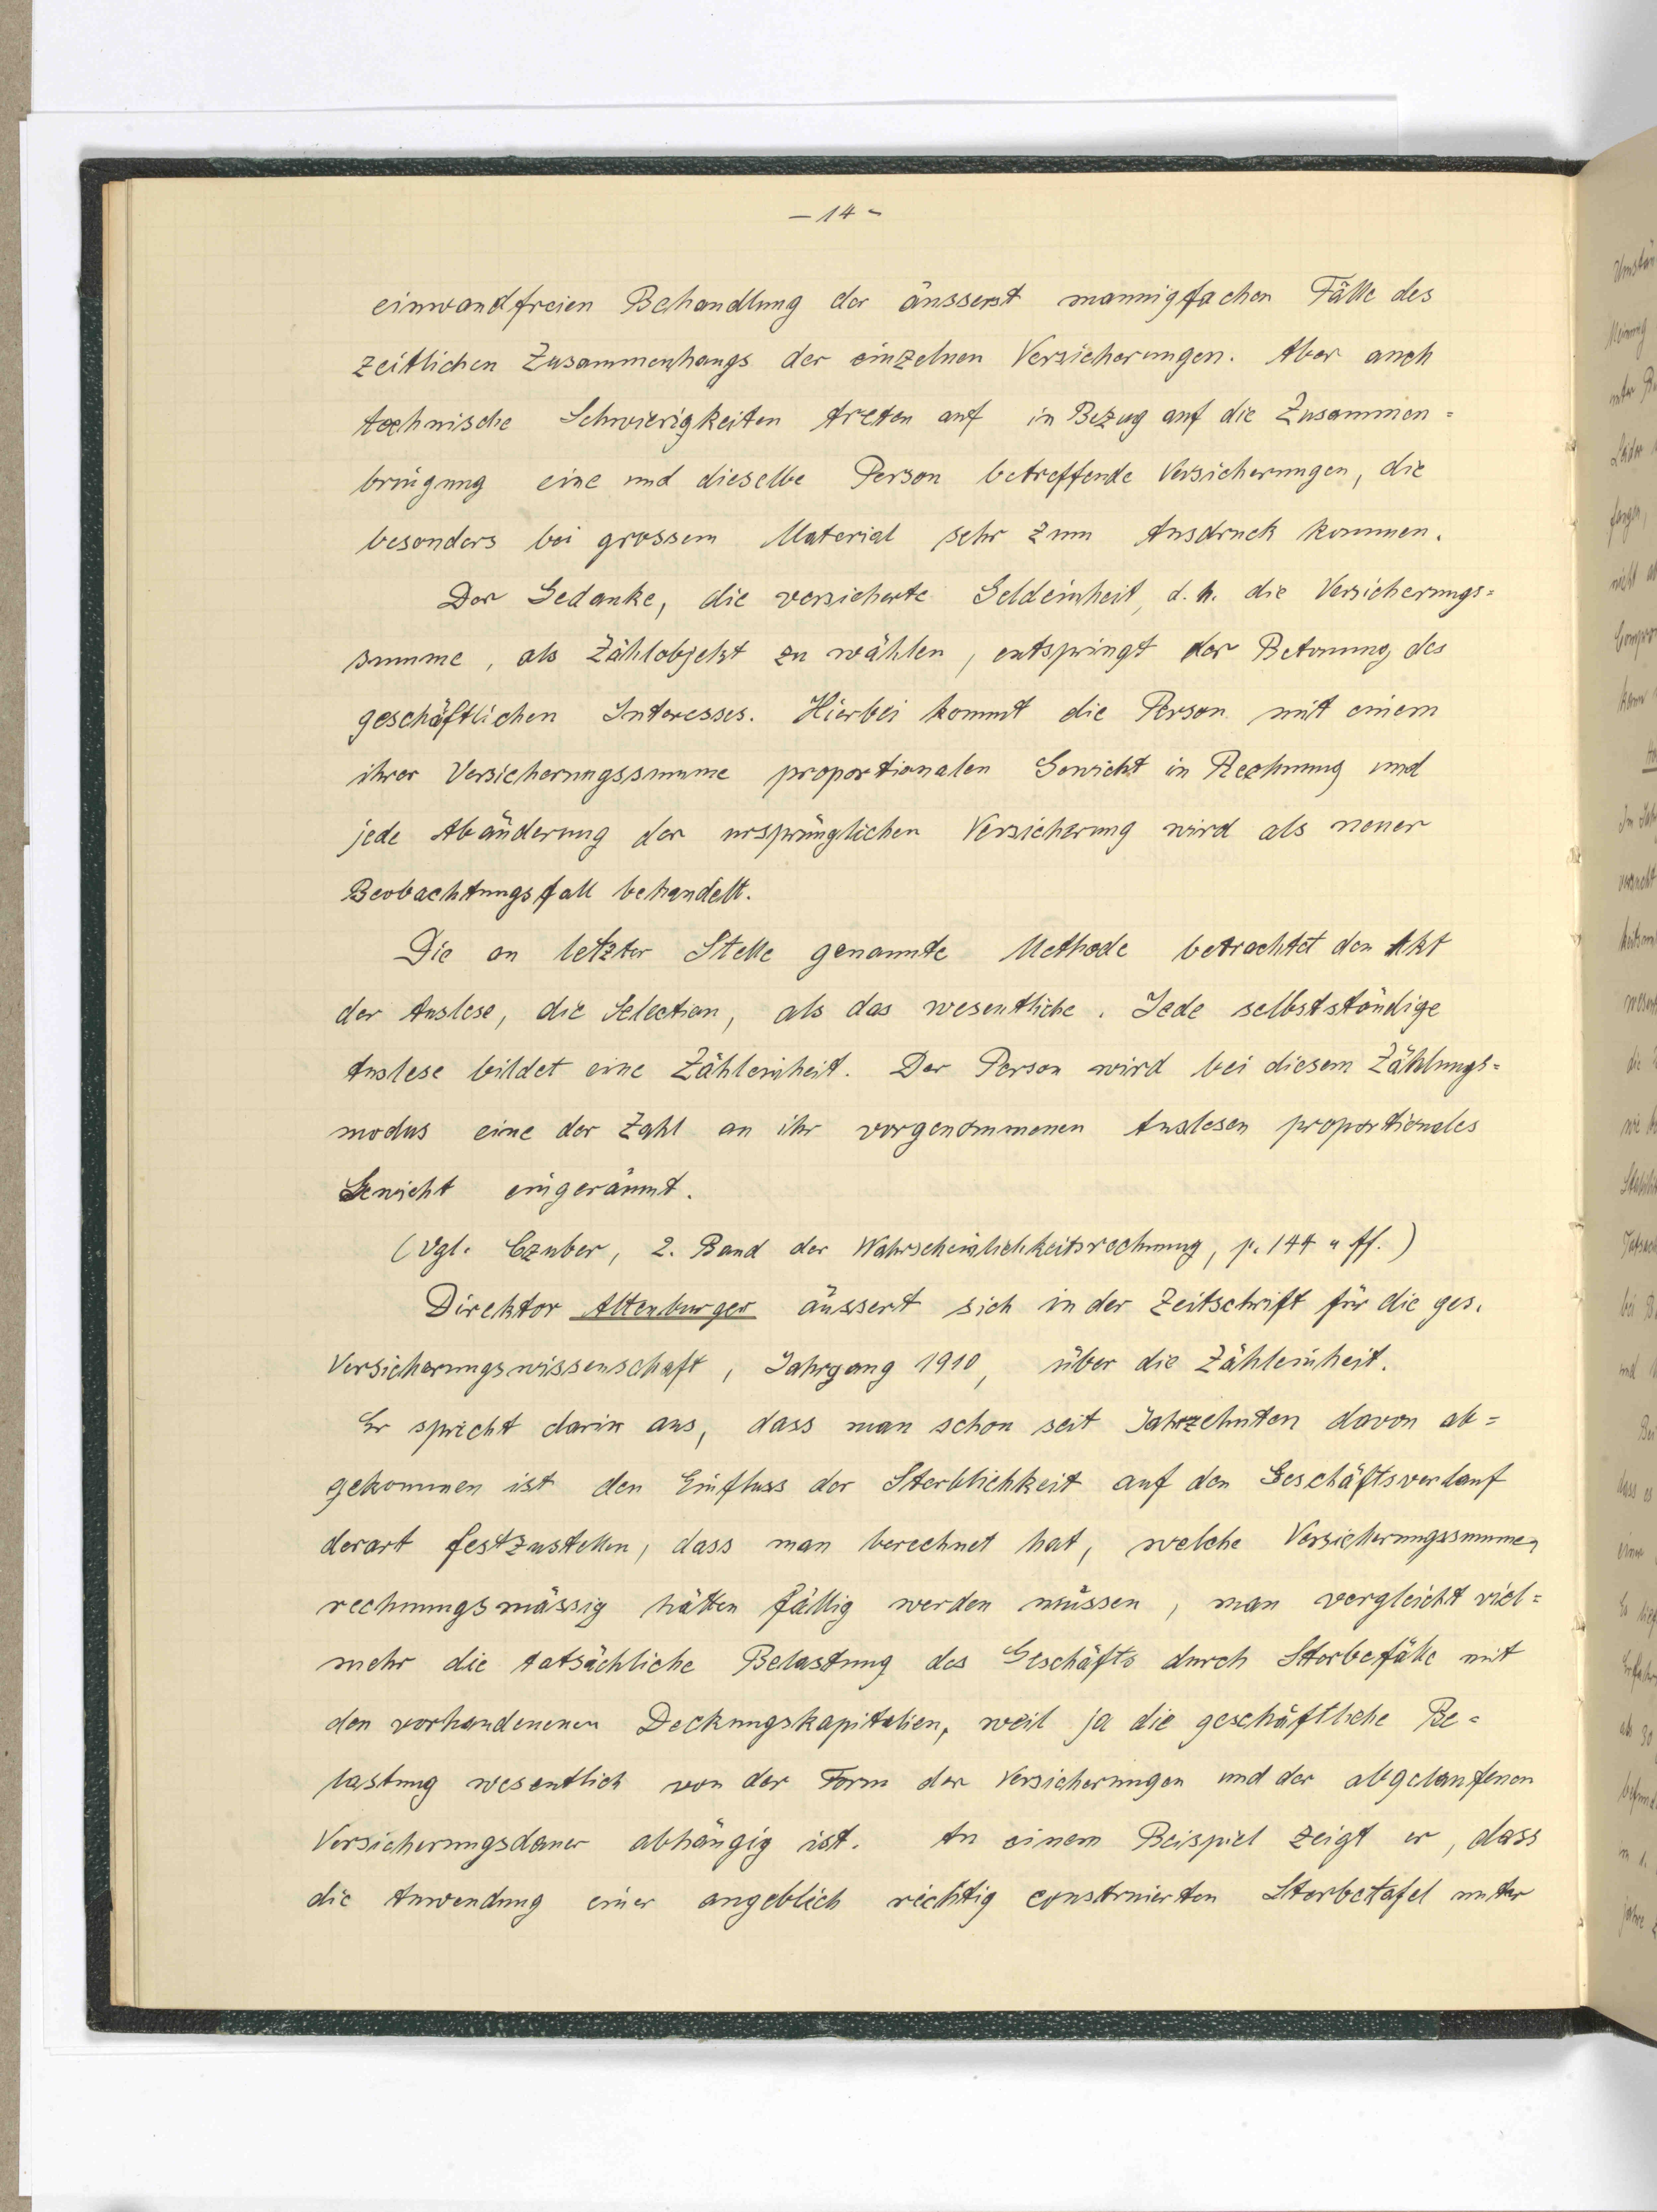 - 14 -
einwandfreien Behandlung der äusserst mannigfachen Fälle des
zeitlichen Zusammenhangs der einzelnen Versicherungen. Aber auch
technische Schwierigkeiten treten auf in Bezug auf die Zusammen=
bringung eine und dieselbe Person betreffende Versicherungen, die
besonders bei grossem Material sehr zum Ausdruck kommen.
Der Gedanke, die versicherte Geldeinheit, d.h. die Versicherungs=
summe, als Zählobjekt zu wählen, entspringt der Betonung des
geschäftlichen Interesses. Hierbei kommt die Person mit einem
ihrer Versicherungssumme proportionalen Gewicht in Rechnung und
jede Abänderung der ursprünglichen Versicherung wird als neuer
Beobachtungsfall behandelt.
Die an letzter Stelle genannte Methode betrachtet den Akt
der Auslese, die Selection, als das wesentliche. Jede selbstständige
Auslese bildet eine Zähleinheit. Der Person wird bei diesem Zählungs=
modus eine der Zahl an ihr vorgenommenen Auslesen proportionales
Gewicht eingeräumt.
(Vgl. Czuber, 2. Band der Wahrscheinlichkeitsrechnung, p. 144 u ff.)
Direktor Altenburger äussert sich in der Zeitschrift für die ges.
Versicherungswissenschaft, Jahrgang 1910, über die Zähleinheit.
Er spricht darin aus, dass man schon seit Jahrzehnten davon ab=
gekommen ist den Einfluss der Sterblichkeit auf den Geschäftsverlauf
derart festzustellen, dass man berechnet hat, welche Versicherungssummen
rechnungsmässig hätten fällig werden müssen, man vergleicht viel=
mehr die tatsächliche Belastung des Geschäfts durch Sterbefälle mit
den vorhandenenen Deckungskapitalien, weil ja die geschäftliche Be=
lastung wesentlich von der Form der Versicherungen und der abgelaufenen
Versicherungsdauer abhängig ist. An einem Beispiel zeigt er, dass
die Anwendung einer angeblich richtig construierten Sterbetafel unter